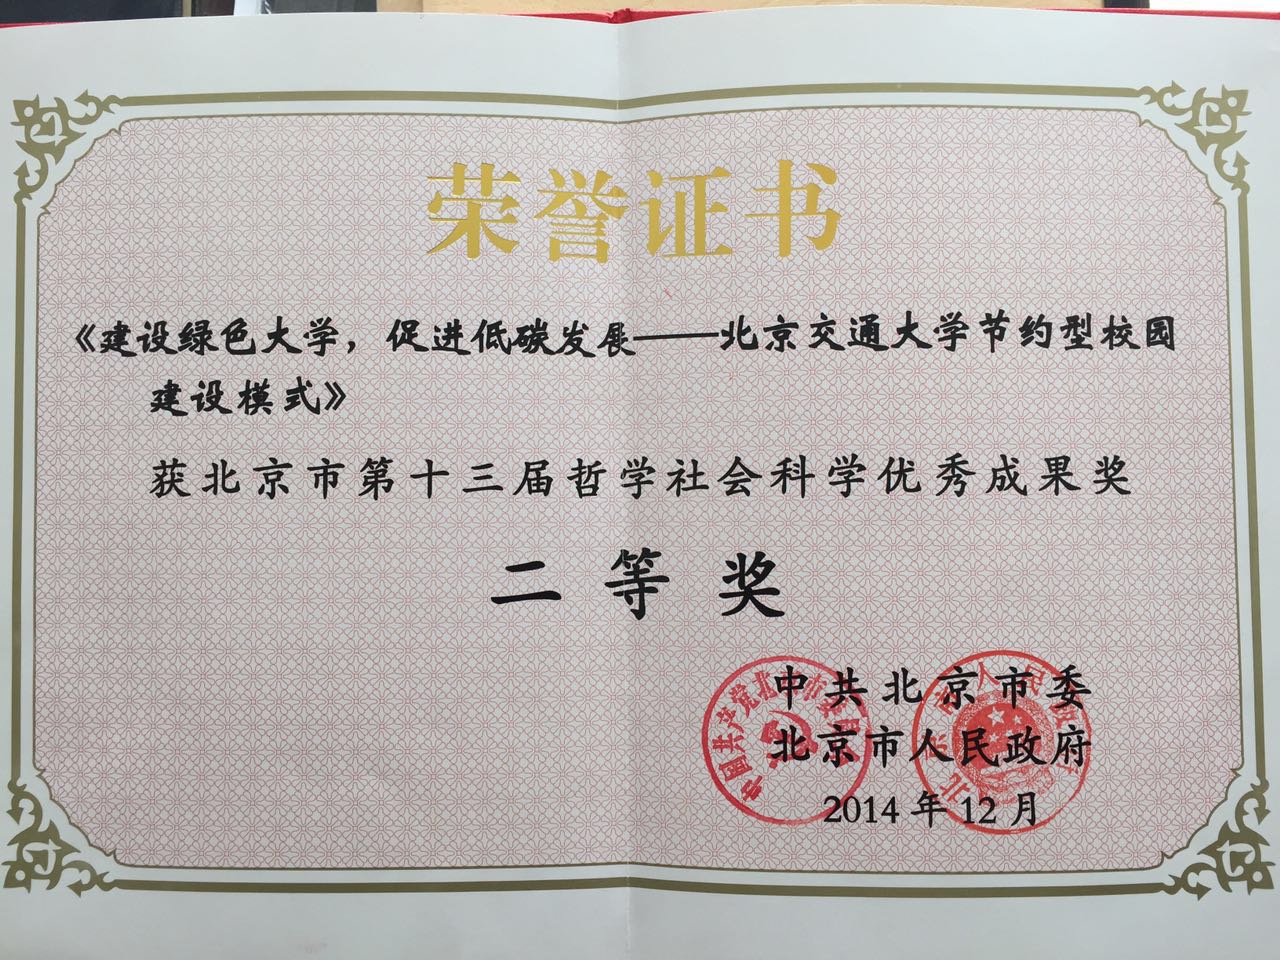 荣誉证书
《建设绿色大学，促进低碳发展——北京交通大学节约型校园
建设模式》
获北京市第十三届哲学社会科学优秀成果奖
二等奖
中共北京市委
北京市人民政府
2014年12月
中国共产党北京市委员会
北京市人民政府